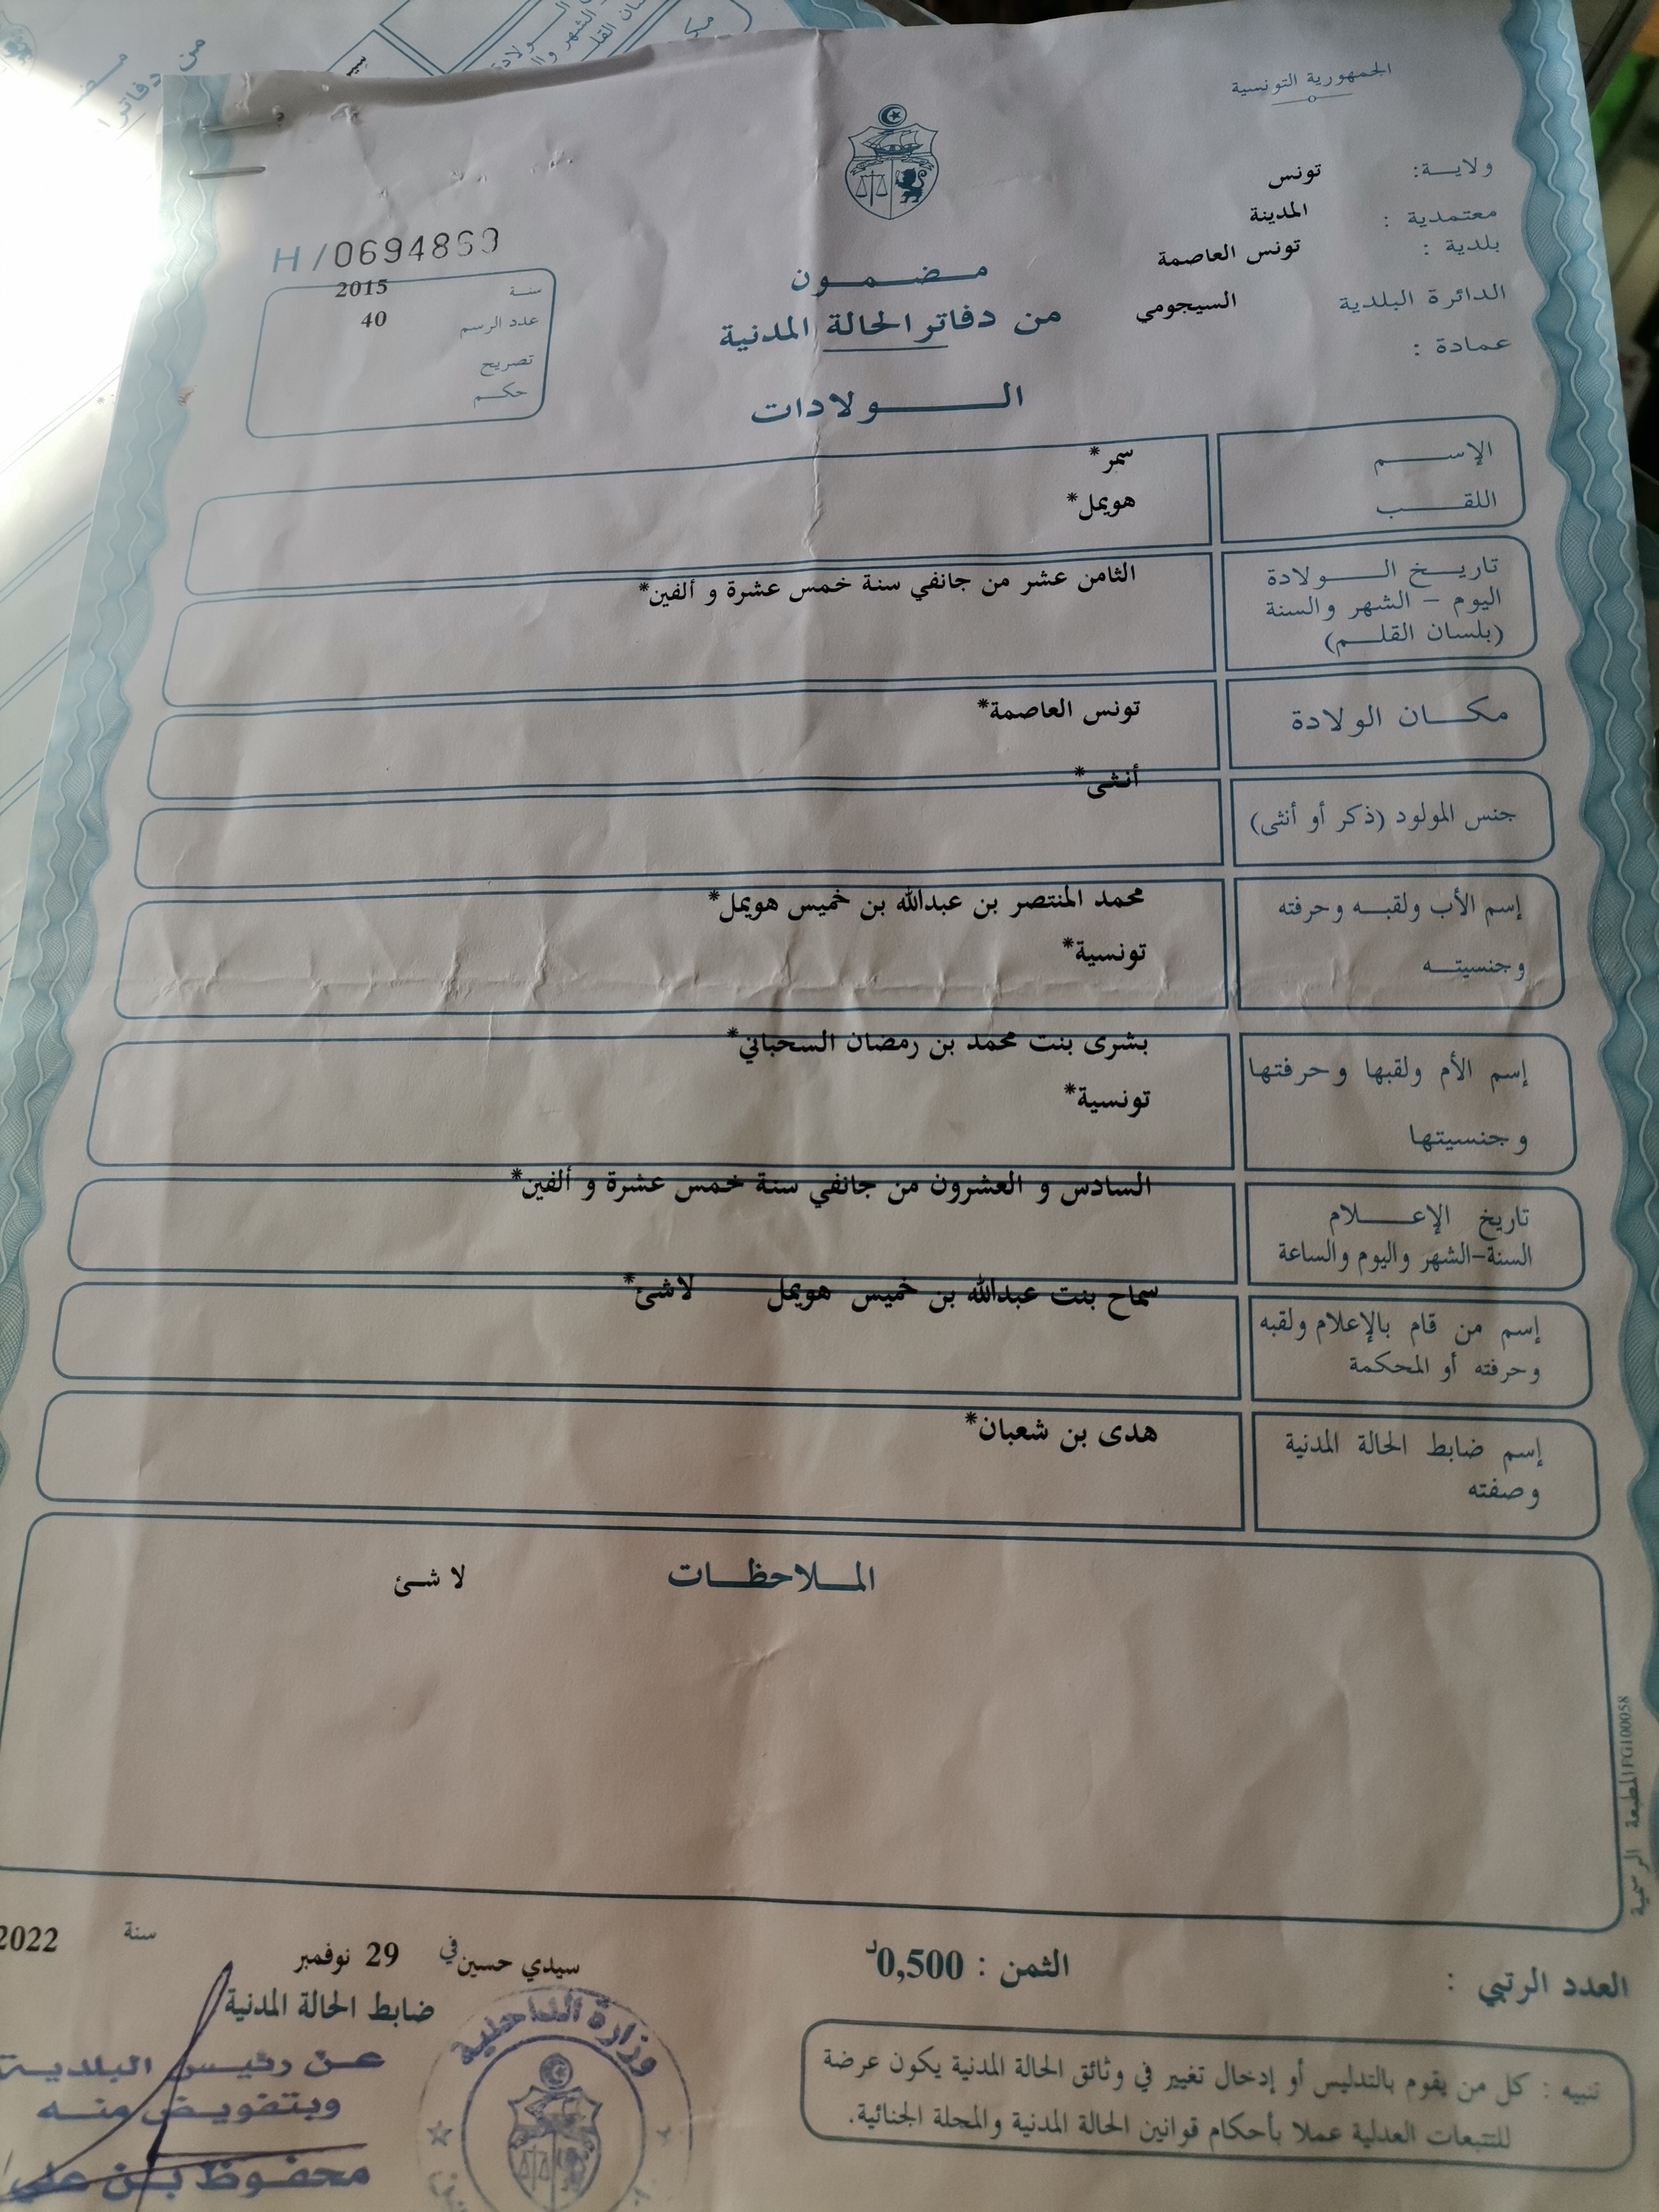 الجمهورية التونسية
ولايـــة: تونس
معتمدية : المدينة
بلدية : تونس العاصمة
الدائرة البلدية السيجومي
عمادة :
H/06948
سنـة 2015
عدد الرسم 40
تصريح
حكـم
مـضـمـون
من دفاتر الحالة المدنية
الـــولادات
الإســـم سمر*
اللقـــب هويمل*
تاريـــخ الـــولادة الثامن عشر من جانفي سنة خمس عشرة و ألفين*
اليوم – الشهر والسنة
(بلسان القلـــم)
مكـــان الولادة تونس العاصمة*
جنس المولود (ذكر أو أنثى) أنثى*
إسم الأب ولقبـــه وحرفته محمد المنتصر بن عبدالله بن خميس هويمل*
وجنسيتـــه تونسية*
إسم الأم ولقبها وحرفتها بشرى بنت محمد بن رمضان السحباني*
وجنسيتها تونسية*
تاريخ الإعـــلام السادس و العشرون من جانفي سنة خمس عشرة و ألفين*
السنة-الشهر واليوم والساعة
إسم من قام بالإعلام ولقبه سماح بنت عبدالله بن خميس هويمل لاشئ*
وحرفته أو المحكمة
إسم ضابط الحالة المدنية هدى بن شعبان*
وصفته
المـــلاحظـــات لا شئ
المطبعة الرسمية FG100058
العدد الرتبي :
الثمن : 0,500د
سيدي حسين في 29 نوفمبر سنة 2022
ضابط الحالة المدنية
عـن رئيـس البلديـة
وبتفويـض منـه
محفـوظ بـن علي
وزارة الداخلية
تنبيه : كل من يقوم بالتدليس أو إدخال تغيير في وثائق الحالة المدنية يكون عرضة
للتتبعات العدلية عملا بأحكام قوانين الحالة المدنية والمجلة الجنائية.